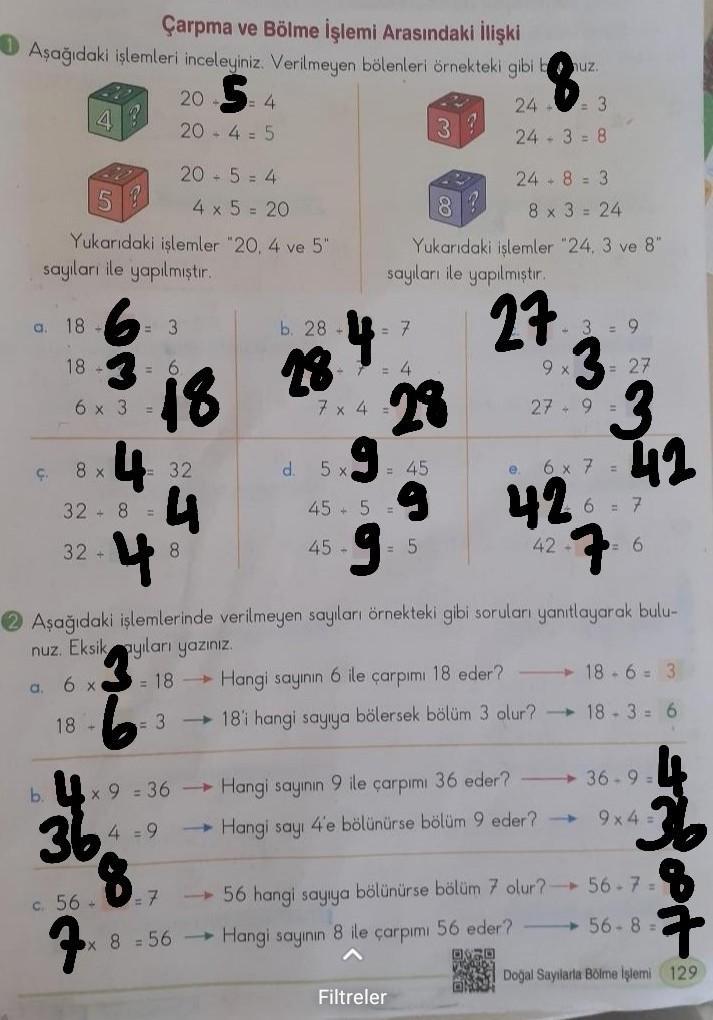 Çarpma ve Bölme İşlemi Arasındaki İlişki
1 Aşağıdaki işlemleri inceleyiniz. Verilmeyen bölenleri örnekteki gibi nuz.
4 ?
20 ÷ 5 = 4
20 ÷ 4 = 5
5 ?
20 ÷ 5 = 4
4 x 5 = 20
Yukarıdaki işlemler "20, 4 ve 5"
sayıları ile yapılmıştır.
3 ?
24 ÷ 8 = 3
24 ÷ 3 = 8
8 ?
24 ÷ 8 = 3
8 x 3 = 24
Yukarıdaki işlemler "24, 3 ve 8"
sayıları ile yapılmıştır.
a. 18 ÷ 6 = 3
18 ÷ 3 = 6
6 x 3 = 18
b. 28 ÷ 4 = 7
28 ÷ 7 = 4
7 x 4 = 28
27 ÷ 3 = 9
9 x 3 = 27
27 ÷ 9 = 3
ç. 8 x 4 = 32
32 ÷ 8 = 4
32 ÷ 4 8
d. 5 x 9 = 45
45 ÷ 5 = 9
45 ÷ 9 = 5
e. 6 x 7 = 42
42 6 = 7
42 ÷ 7 = 6
2 Aşağıdaki işlemlerinde verilmeyen sayıları örnekteki gibi soruları yanıtlayarak bulu-
nuz. Eksik ayıları yazınız.
a. 6 x 3 = 18 → Hangi sayının 6 ile çarpımı 18 eder? → 18 ÷ 6 = 3
18 ÷ 6 = 3 → 18'i hangi sayıya bölersek bölüm 3 olur? → 18 ÷ 3 = 6
b. 4 x 9 = 36 → Hangi sayının 9 ile çarpımı 36 eder? → 36 ÷ 9 = 4
36 4 = 9 → Hangi sayı 4'e bölünürse bölüm 9 eder? → 9 x 4 = 36
c. 56 ÷ 8 = 7 → 56 hangi sayıya bölünürse bölüm 7 olur? → 56 ÷ 7 = 8
7 x 8 = 56 → Hangi sayının 8 ile çarpımı 56 eder? → 56 ÷ 8 = 7
Doğal Sayılarla Bölme İşlemi 129
Filtreler